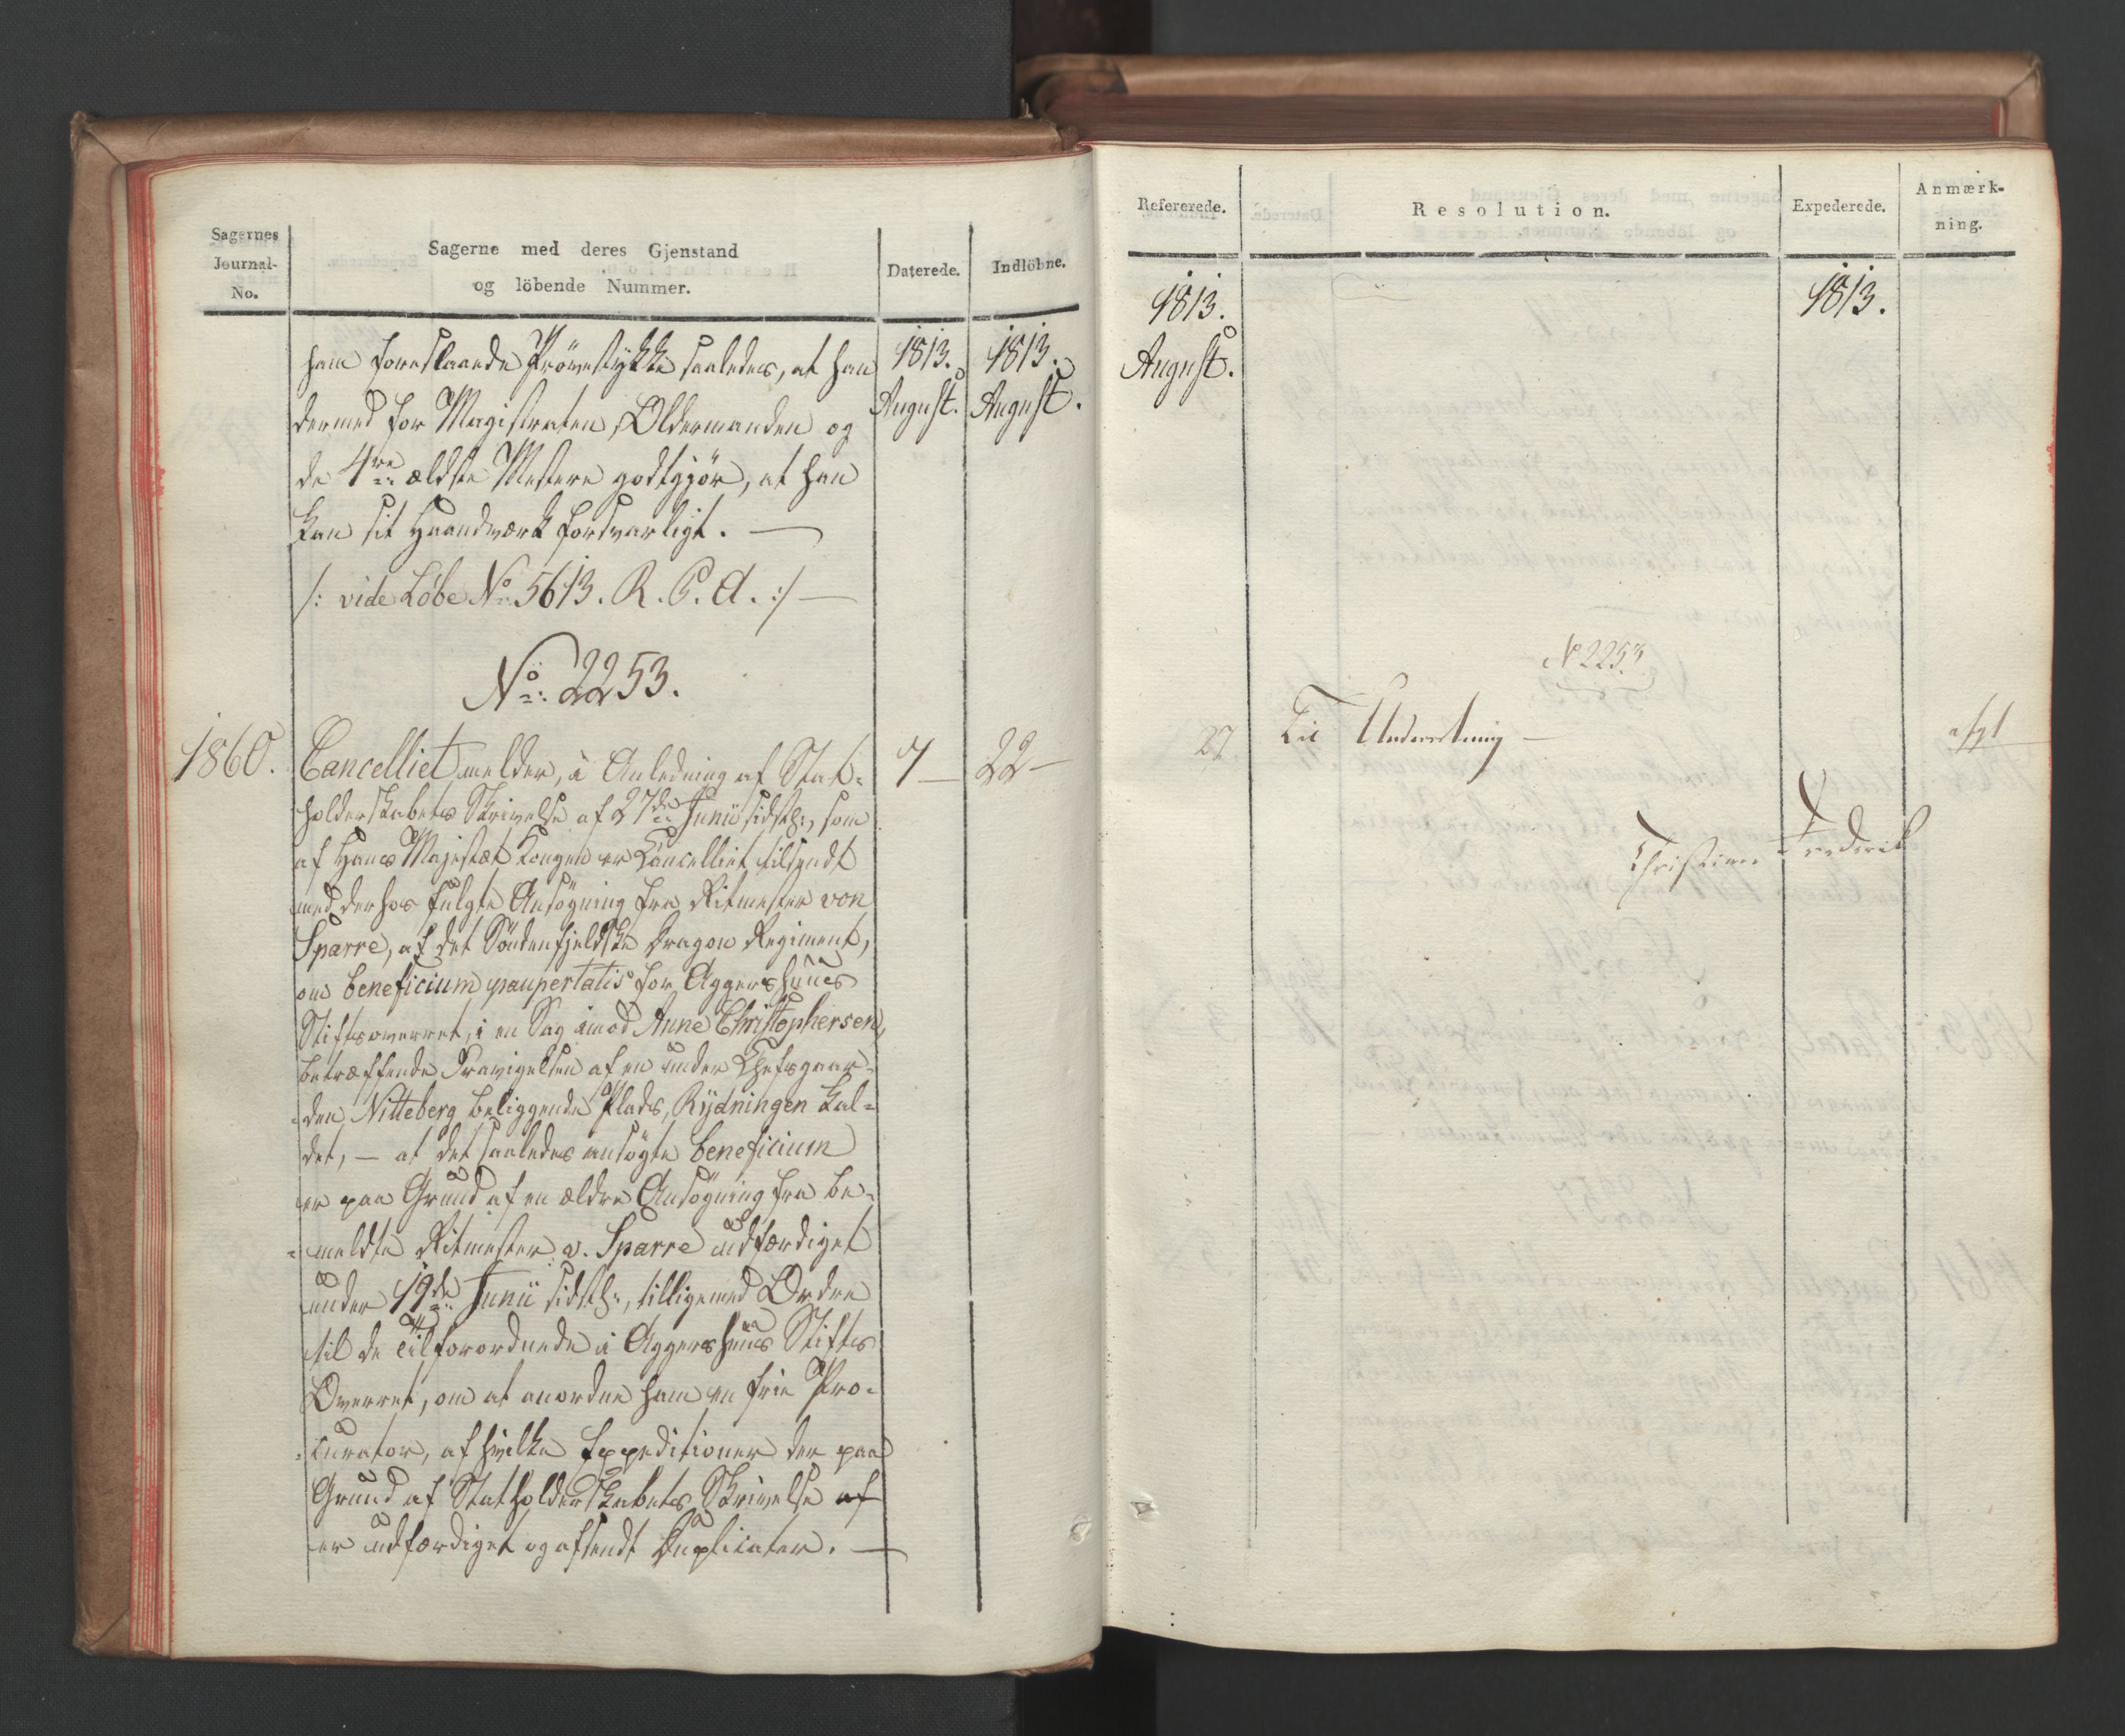 Sagernes
Journal-
No.
Sagerne med deres Gjenstand
og löbende Nummer.
Daterede.
Indlöbne.
1813.
August.
1813.
August.
ham foreslaaede Prøvestykke saaledes, at han
dermed for Magistraten, Oldermanden og
de 4re ældste Mestere godtgjör, at han
kan sit Haandværk forsvarligt. —
/: vide Løbe No 5613. R. P. A. :/ —
No: 2253.
1860.
Cancelliet melder, i Anledning af Stat-
holderskabets Skrivelse af 27de Junii sidstl:, som
af Hans Majestæt Kongen er Cancelliet tilsendt
med derhos fulgte Ansögning fra Ritmester von
Sparre, af det Söndenfjeldske Dragon Regiment,
om beneficium paupertatis for Aggershuus
Stiftsoverret, i en Sag imod Anne Christophersen,
betræffende Fravigelsen af en under Chefsgaar-
den Nitteberg beliggende Plads, Rydningen kal-
det, — at det saaledes ansögte beneficium
er paa Grund af en ældre Ansögning fra be-
meldte Ritmester v. Sparre udfærdiget
under 19de Junii sidstl:, tilligemed Ordre
til de Tilforordnede i Aggershuus Stifts
Overret, om at anordne ham en frie Pro-
curator, af hvilke Expeditioner der paa
Grund af Statholderskabets Skrivelse af
er udfærdiget og afsendt Duplicater. —
7 —
22 —
Refererede.
Resolution.
Expederede.
Anmærk-
ning.
1813.
August.
1813.
No 2253
27.
Til Underretning —
afgl
Christian Frederik